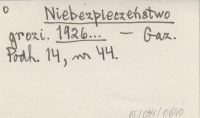 Niebezpieczeństwo
grozi. 1926... — Gaz.
Podh. 14, nr 44.